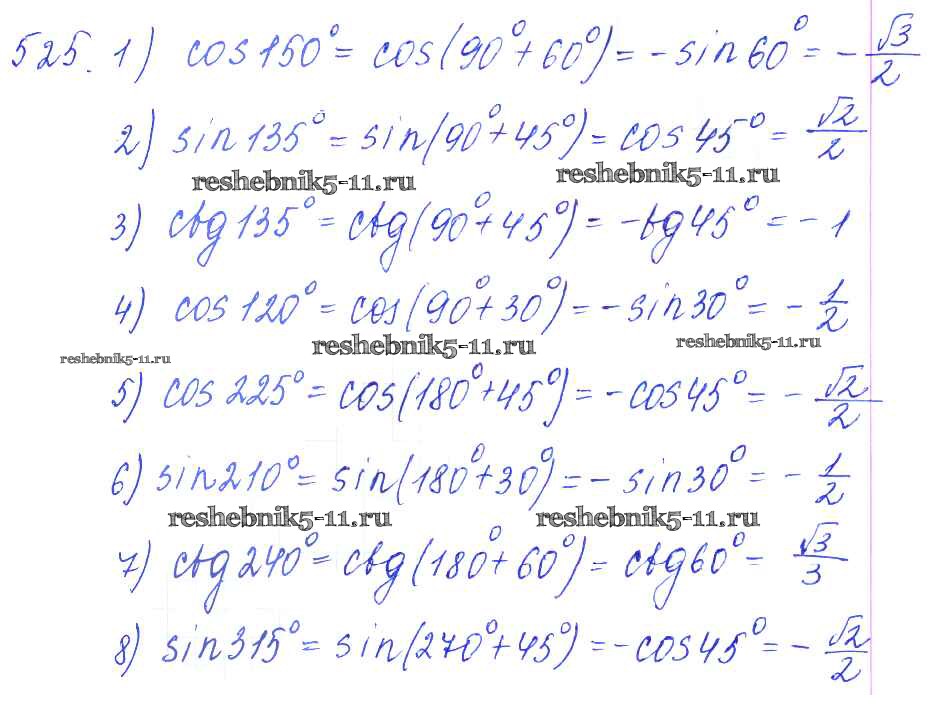 525. 1) cos 150° = cos(90° + 60°) = - sin 60° = - √3/2
2) sin 135° = sin(90° + 45°) = cos 45° = √2/2
reshebnik5-11.ru reshebnik5-11.ru
3) ctg 135° = ctg(90° + 45°) = - tg 45° = - 1
4) cos 120° = cos(90° + 30°) = - sin 30° = - 1/2
reshebnik5-11.ru reshebnik5-11.ru reshebnik5-11.ru
5) cos 225° = cos(180° + 45°) = - cos 45° = - √2/2
6) sin 210° = sin(180° + 30°) = - sin 30° = - 1/2
reshebnik5-11.ru reshebnik5-11.ru
7) ctg 240° = ctg(180° + 60°) = ctg 60° = √3/3
8) sin 315° = sin(270° + 45°) = - cos 45° = - √2/2